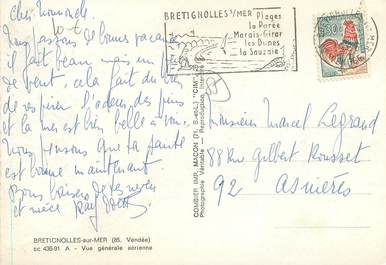 Cher Nononcle
Nous passons de bonnes vacances
il fait beau mais un peu
de vent, cela fait du bien
de respirer l'odeur des pins
et la mer est bien belle à voir.
Nous pensons que ta santé
est bonne maintenant
Bons baisers de tes neveu
et nièce
BRETIGNOLLES S/MER
Plages
la Parée
Marais-Girar
les Dunes
la Sauzaie
0,30
COMBIER IMP. MACON (71. S.-et-L.) "CIM"
Photographie Véritable - Reproduction Int.
Monsieur Marcel Legrand
88 Rue Gilbert Rousset
92 Asnières
BRETIGNOLLES-sur-MER (85. Vendée)
EC 436-91 A - Vue générale aérienne